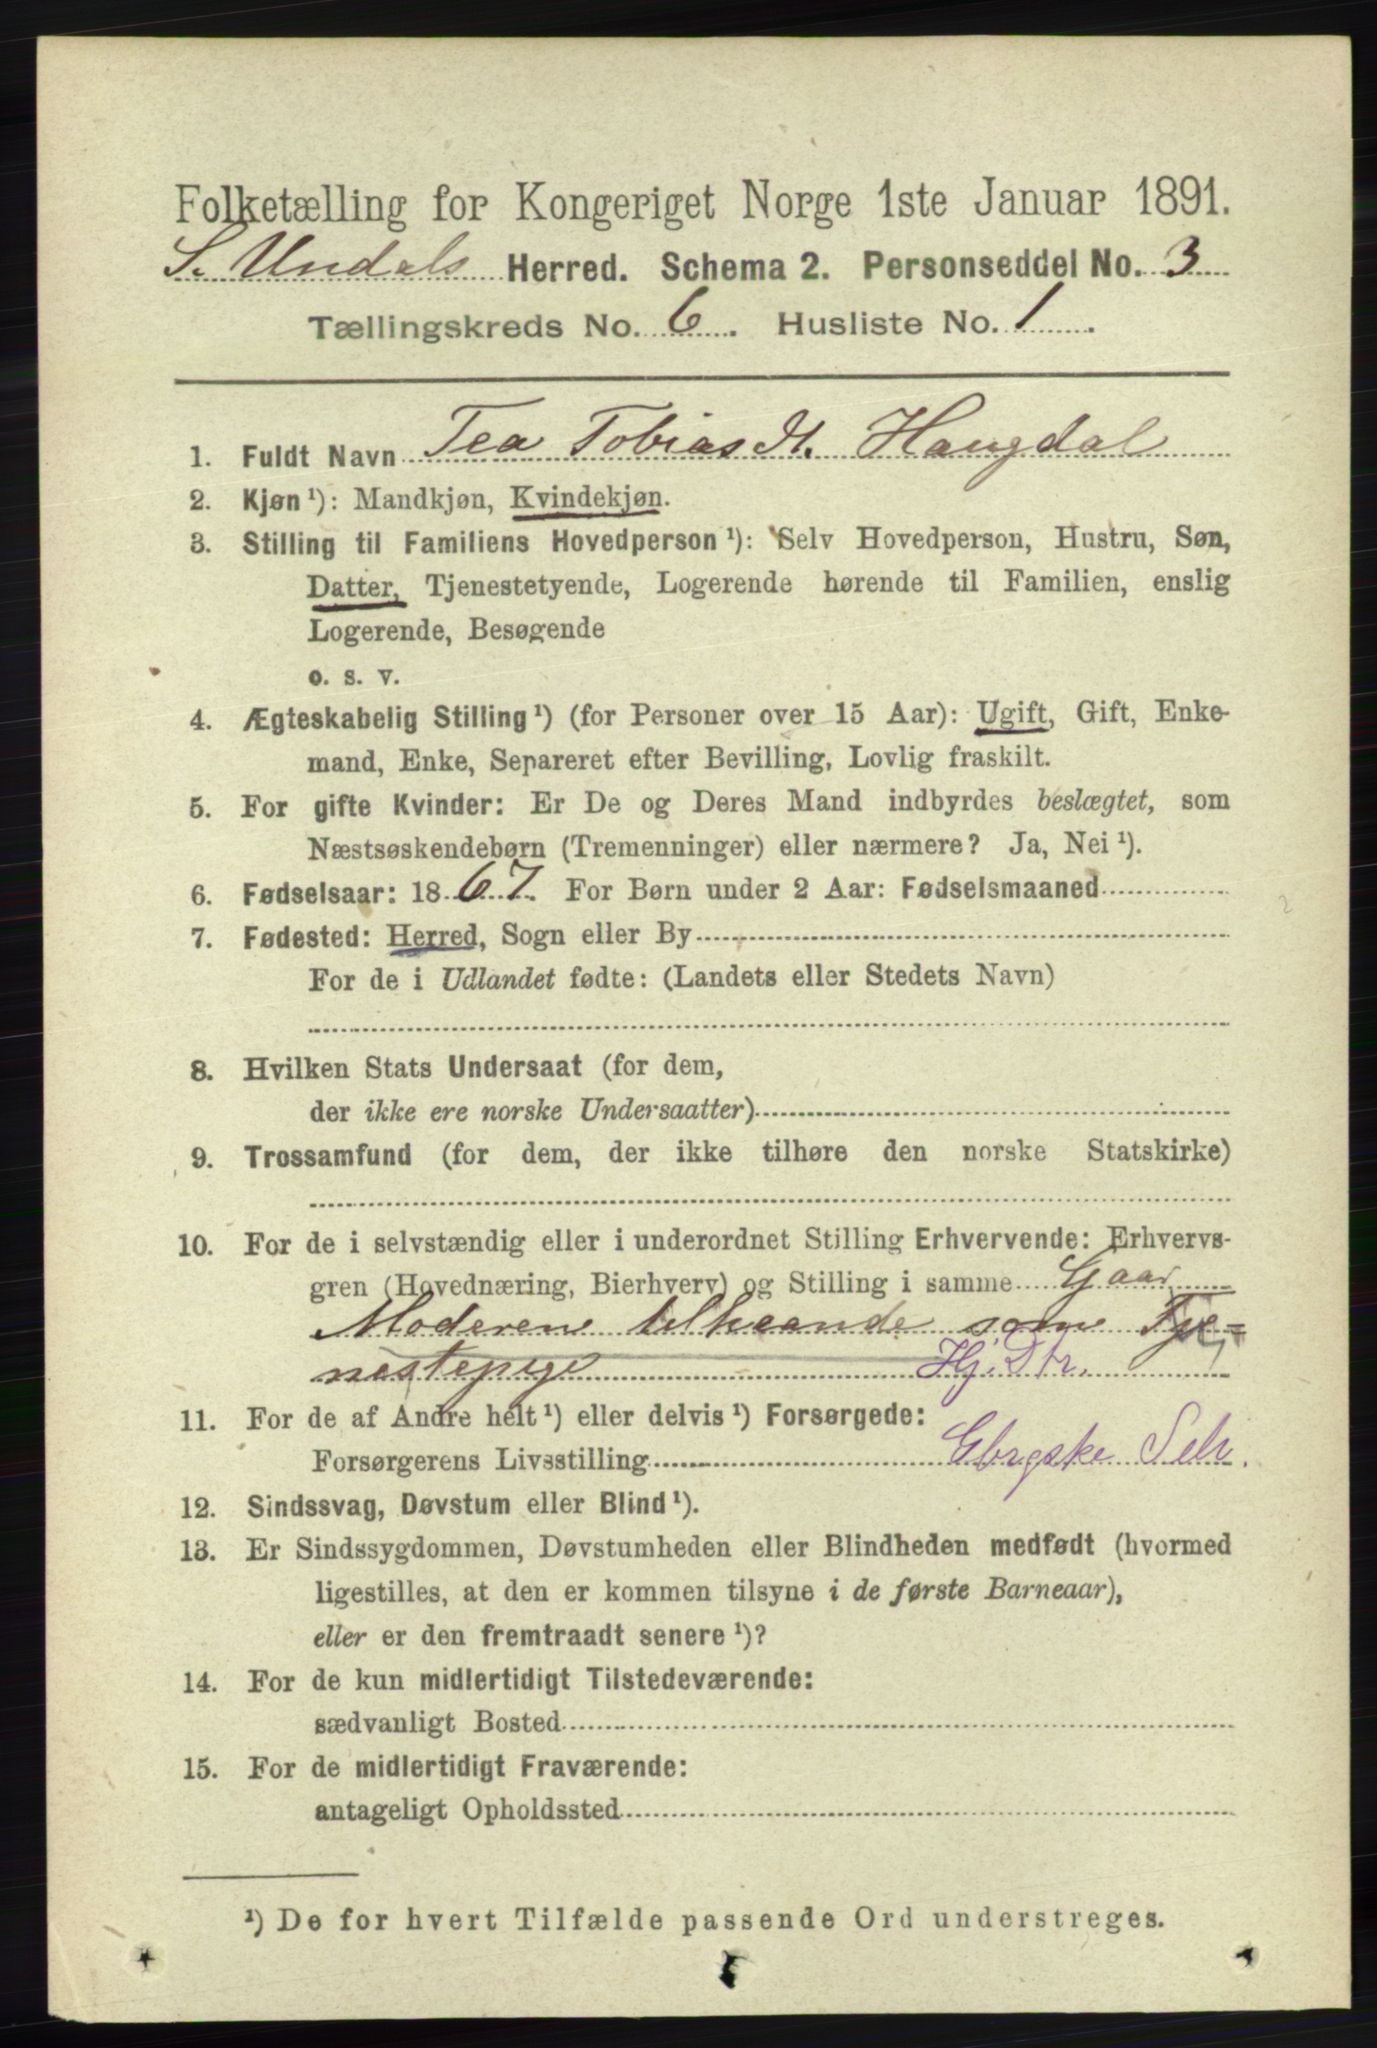 Folketælling for Kongeriget Norge 1ste Januar 1891.
S. Undals Herred. Schema 2. Personseddel No. 3
Tællingskreds No. 6. Husliste No. 1.
1. Fuldt Navn Tea Tobiasdt. Haugdal
2. Kjøn ¹): Mandkjøn, Kvindekjøn.
3. Stilling til Familiens Hovedperson ¹): Selv Hovedperson, Hustru, Søn,
Datter, Tjenestetyende, Logerende hørende til Familien, enslig
Logerende, Besøgende
o. s. v.
4. Ægteskabelig Stilling ¹) (for Personer over 15 Aar): Ugift, Gift, Enke-
mand, Enke, Separeret efter Bevilling, Lovlig fraskilt.
5. For gifte Kvinder: Er De og Deres Mand indbyrdes beslægtet, som
Næstsøskendebørn (Tremenninger) eller nærmere? Ja, Nei ¹).
6. Fødselsaar: 1867. For Børn under 2 Aar: Fødselsmaaned
7. Fødested: Herred, Sogn eller By
For de i Udlandet fødte: (Landets eller Stedets Navn)
8. Hvilken Stats Undersaat (for dem,
der ikke ere norske Undersaatter)
9. Trossamfund (for dem, der ikke tilhøre den norske Statskirke)
10. For de i selvstændig eller i underordnet Stilling Erhvervende: Erhvervs-
gren (Hovednæring, Bierhverv) og Stilling i samme Gaar
Moderen tilhaande som Tje=
nestepige Hj. Dtr.
11. For de af Andre helt ¹) eller delvis ¹) Forsørgede:
Forsørgerens Livsstilling Gbrgske Selv.
12. Sindssvag, Døvstum eller Blind ¹).
13. Er Sindssygdommen, Døvstumheden eller Blindheden medfødt (hvormed
ligestilles, at den er kommen tilsyne i de første Barneaar),
eller er den fremtraadt senere ¹)?
14. For de kun midlertidigt Tilstedeværende:
sædvanligt Bosted
15. For de midlertidigt Fraværende:
antageligt Opholdssted
¹) De for hvert Tilfælde passende Ord understreges.